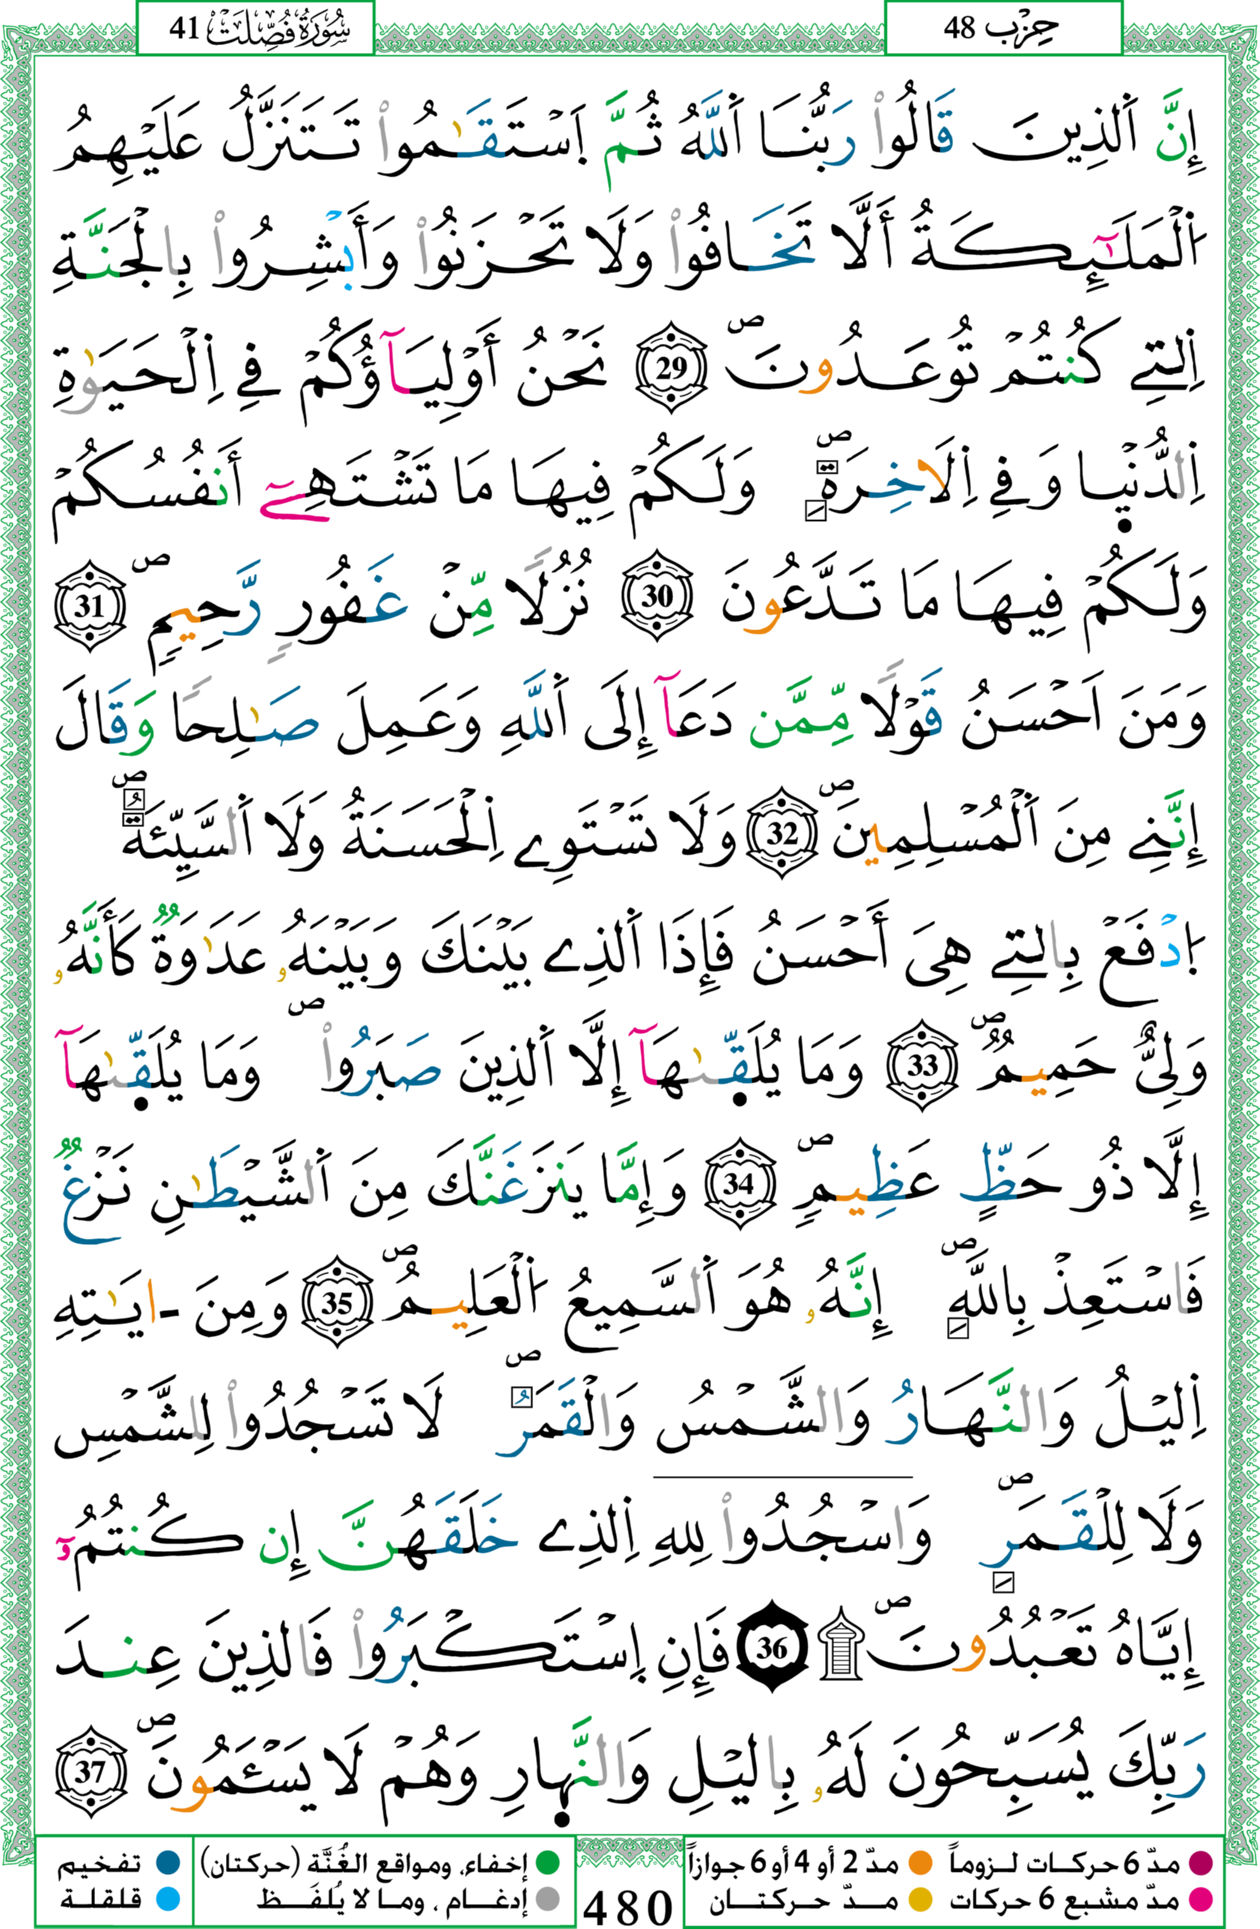 سُورَةُ فُصِّلَتْ 41
حِزْب 48
إِنَّ اَ۬لذِينَ قَالُواْ رَبُّنَا اَ۬للَّهُ ثُمَّ اَ۪سْتَقَٰمُواْ تَتَنَزَّلُ عَلَيْهِمُ
اُ۬لْمَلَٰٓئِكَةُ أَلَّا تَخَافُواْ وَلَا تَحْزَنُواْ وَأَبْشِرُواْ بِالْجَنَّةِ
اِ۬لتِے كُنتُمْ تُوعَدُونَۖ 29 نَحْنُ أَوْلِيَآؤُكُمْ فِے اِ۬لْحَيَوٰةِ
اِ۬لدُّنْي۪ا وَفِے اِ۬لَاخِرَةِۖ وَلَكُمْ فِيهَا مَا تَشْتَهِےٓ أَنفُسُكُمْ
وَلَكُمْ فِيهَا مَا تَدَّعُونَ 30 نُزُلًا مِّنْ غَفُورٍ رَّحِيمٍۖ 31
وَمَنَ اَحْسَنُ قَوْلًا مِّمَّن دَعَآ إِلَى اَ۬للَّهِ وَعَمِلَ صَٰلِحًا وَقَالَ
إِنَّنِے مِنَ اَ۬لْمُسْلِمِينَۖ 32 وَلَا تَسْتَوِے اِ۬لْحَسَنَةُ وَلَا اَ۬لسَّيِّئَةُۖ
اُ۪دْفَعْ بِالتِے هِيَ أَحْسَنُ فَإِذَا اَ۬لذِے بَيْنَكَ وَبَيْنَهُۥ عَدَٰوَةٌ كَأَنَّهُۥ
وَلِيٌّ حَمِيمٌۖ 33 وَمَا يُلَقّ۪ىٰهَآ إِلَّا اَ۬لذِينَ صَبَرُواْۖ وَمَا يُلَقّ۪ىٰهَآ
إِلَّا ذُو حَظٍّ عَظِيمٍۖ 34 وَإِمَّا يَنزَغَنَّكَ مِنَ اَ۬لشَّيْطَٰنِ نَزْغٌ
فَاسْتَعِذْ بِاللَّهِۖ إِنَّهُۥ هُوَ اَ۬لسَّمِيعُ اُ۬لْعَلِيمُۖ 35 وَمِنَ ـ اٰيَٰتِهِ
اِ۬ليْلُ وَالنَّهَارُ وَالشَّمْسُ وَالْقَمَرُۖ لَا تَسْجُدُواْ لِلشَّمْسِ
وَلَا لِلْقَمَرِۖ وَاسْجُدُواْ لِلهِ اِ۬لذِے خَلَقَهُنَّ إِن كُنتُمُۥٓ
إِيَّاهُ تَعْبُدُونَۖ ۩ 36 فَإِنِ اِ۪سْتَكْبَرُواْ فَالذِينَ عِندَ
رَبِّكَ يُسَبِّحُونَ لَهُۥ بِاليْلِ وَالنَّه۪ارِ وَهُمْ لَا يَسْـَٔمُونَۖ 37
مدّ 6 حركات لـزوماً مدّ 2 أو 4 أو 6 جوازاً
مدّ مشبع 6 حركات مـــدّ حركتـــان
480
إخفاء، ومواقع الغُنَّة (حركتان) تفخيم
إدغـــام ، ومـا لا يُلفَـــظ قلقلة